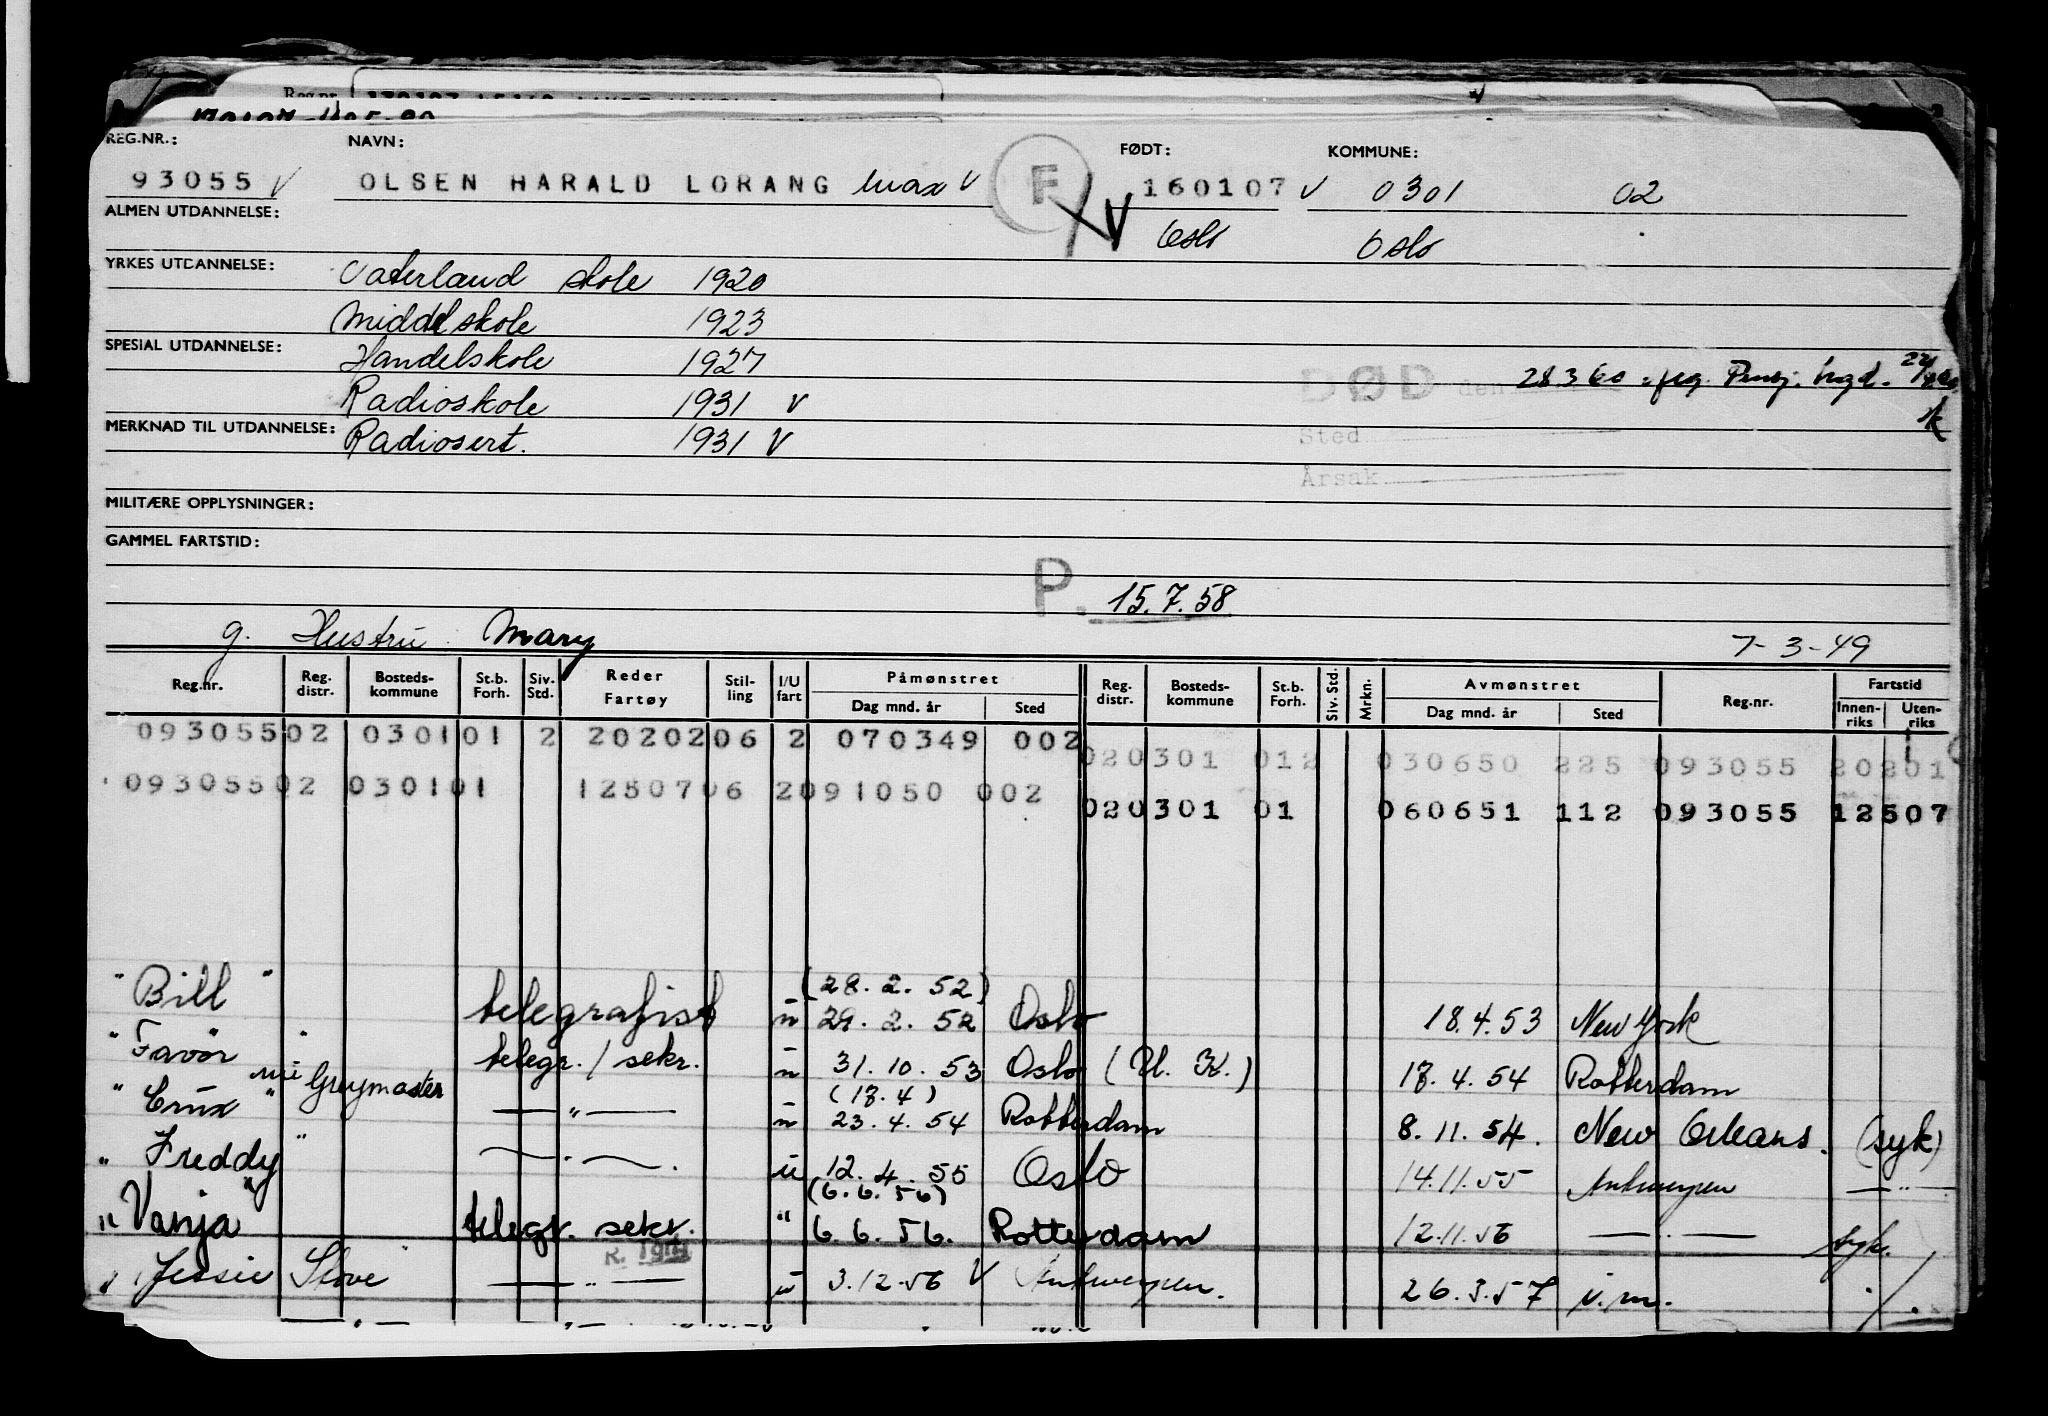 REG.NR.: NAVN: FØDT: KOMMUNE:
93055 V OLSEN HARALD LORANG Max V F 160107 V 0301 02
ALMEN UTDANNELSE: V Oslo Oslo
YRKES UTDANNELSE: Vaterland skole 1920
Middelskole 1923
SPESIAL UTDANNELSE: Handelskole 1927
DØD den 28360
Radioskole 1931 V
Sted
MERKNAD TIL UTDANNELSE: Radiosert. 1931 V
Årsak
MILITÆRE OPPLYSNINGER:
GAMMEL FARTSTID:
P. 15.7.58
g. Hustru Mary 7-3-49
Reg.nr. Reg. distr. Bosteds-kommune St.b. Forh. Siv. Std. Reder Fartøy Stil-ling I/U fart Påmønstret Dag mnd. år Sted Reg. distr. Bosteds-kommune St.b. Forh. Siv. Std. Mrkn. Avmønstret Dag mnd. år Sted Reg.nr. Fartstid Innen-riks Uten-riks
093055 02 0301 01 2 20202 06 2 070349 002
020301 012 030650 225 093055 20201
093055 02 0301 01 12507 06 2 091050 002
020301 01 060651 112 093055 12507
(28.2.52)
"Bill" telegrafist u 29.2.52 Oslo 18.4.53 New York
"Favør" telegr./sekr. u 31.10.53 Oslo (Ul. K.) 18.4.54 Rotterdam
(18.4)
"Crux" Greymaster — " — u 23.4.54 Rotterdam 8.11.54. New Orleans. (syk)
"Freddy" — " — u 12.4.55 Oslo 14.11.55 Antwerpen — " —
(6.6.56)
"Vanja" telegr. sekr. " 6.6.56. Rotterdam 12.11.56 — " — syk.
"Jessie Stove" — " — u 3.12.56 V Antwerpen. 26.3.57